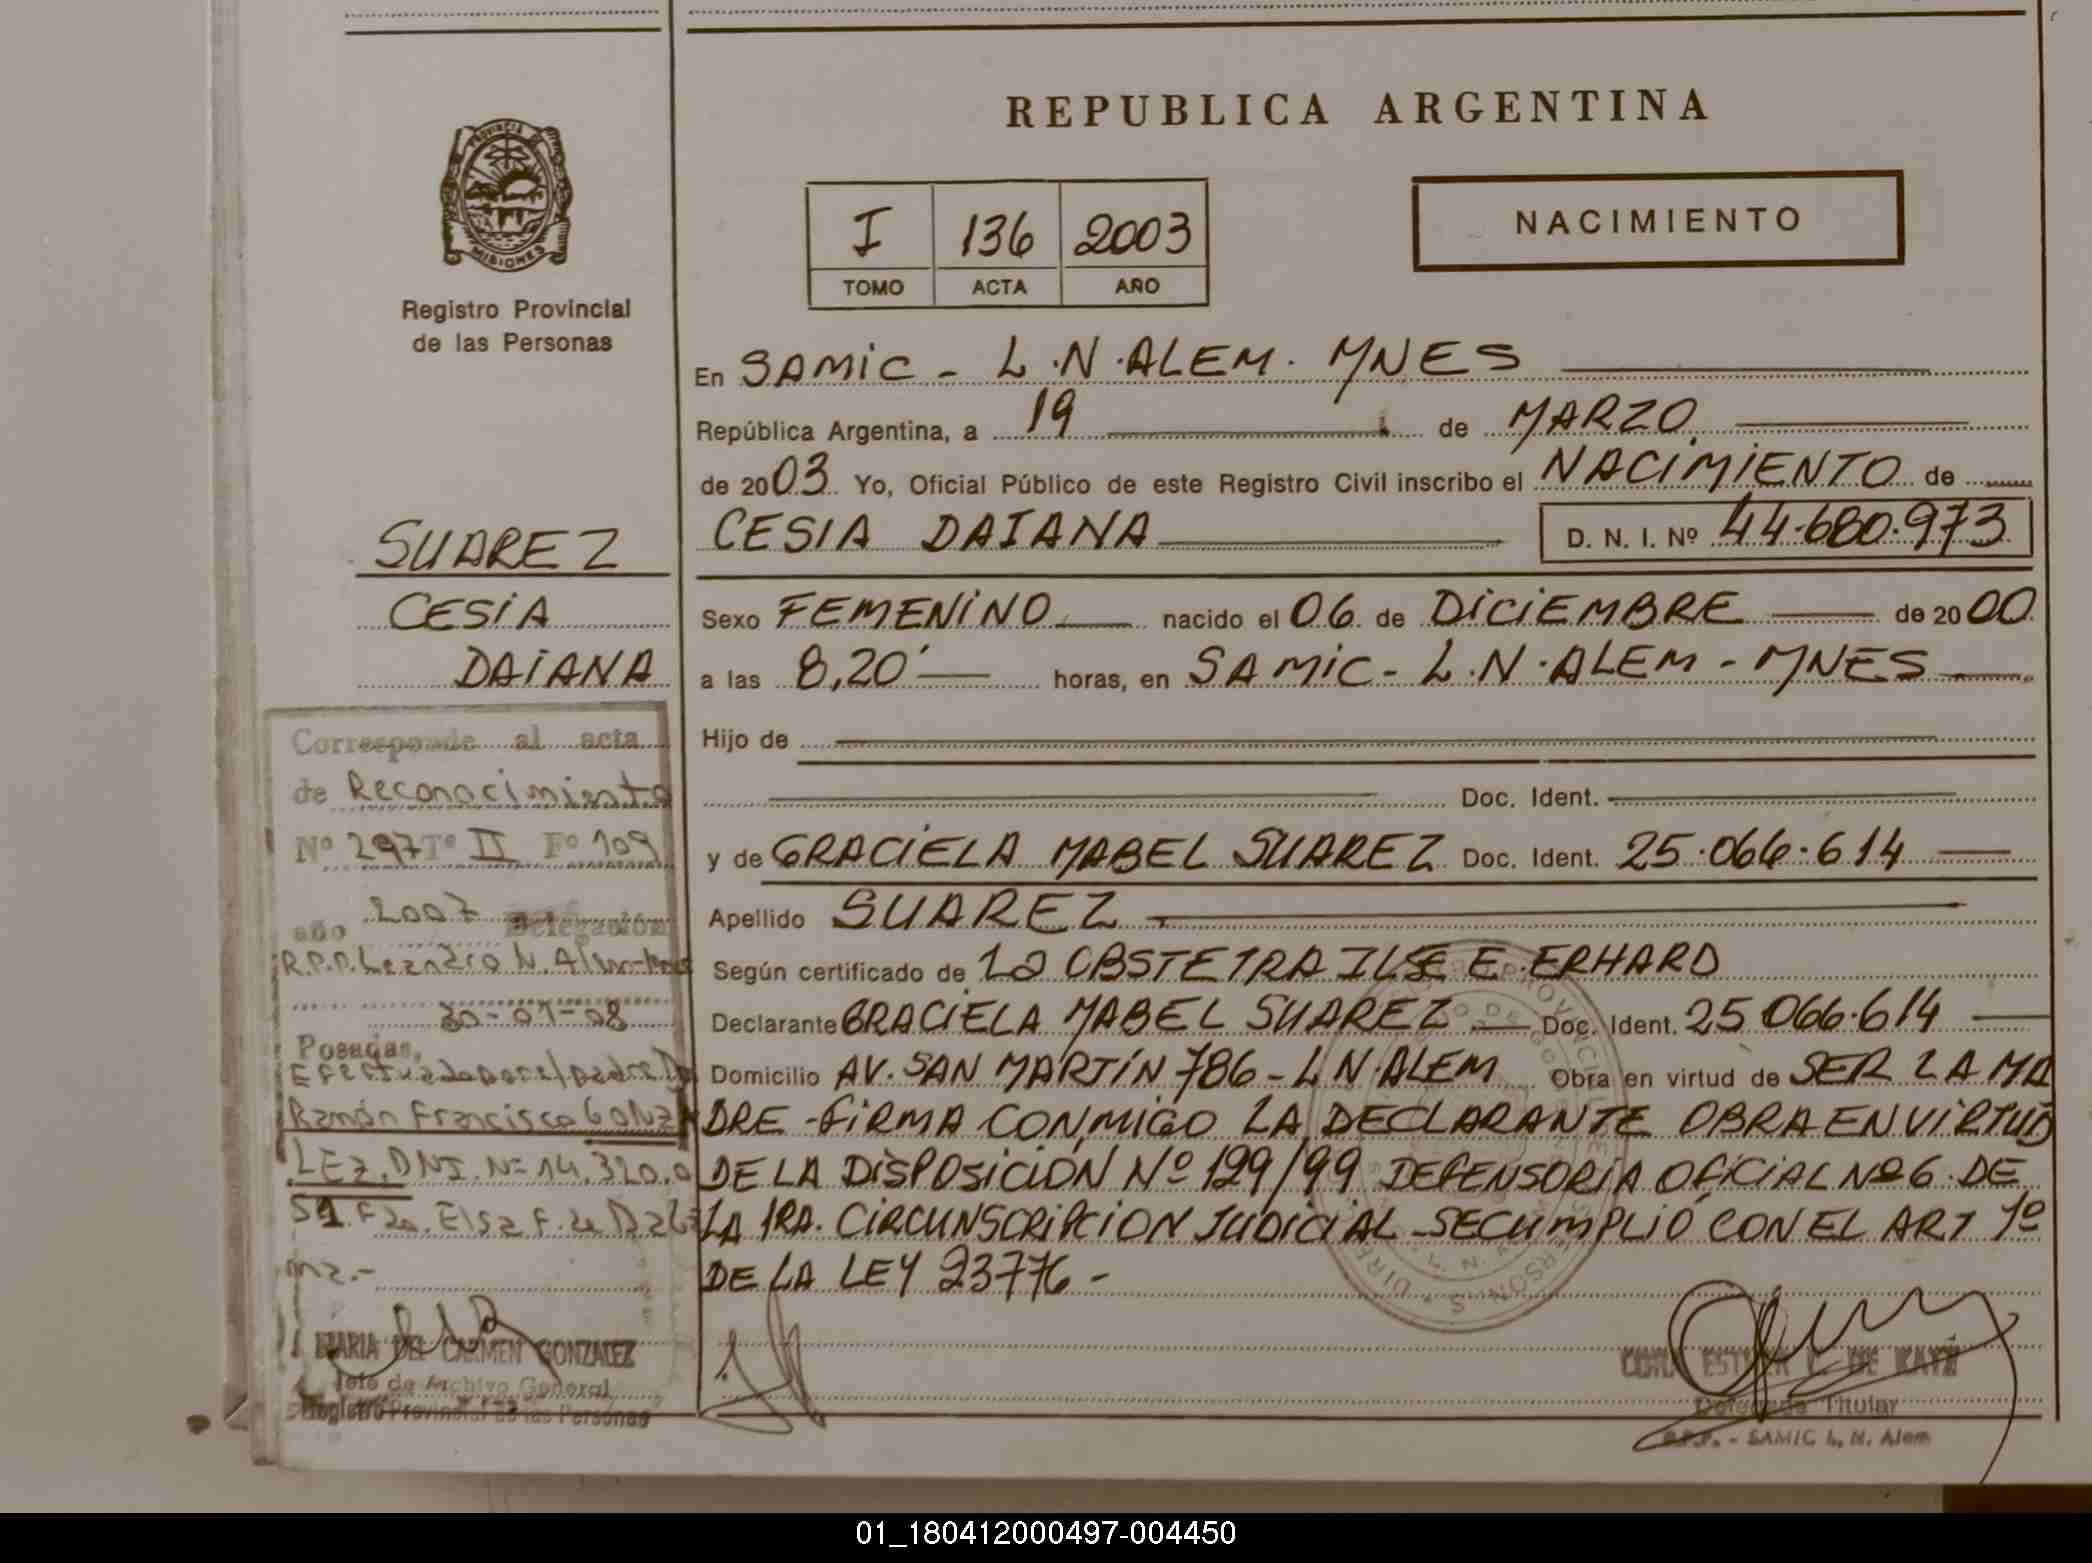 REPUBLICA ARGENTINA
PROVINCIA DE
MISIONES
Registro Provincial
de las Personas
I 136 2003
TOMO ACTA AÑO
NACIMIENTO
En SAMIC - L.N.ALEM. MNES
República Argentina, a 19 de MARZO
de 2003 Yo, Oficial Público de este Registro Civil inscribo el NACIMIENTO de
CESIA DAIANA D. N. I. Nº 44.680.973
Sexo FEMENINO nacido el 06 de DICIEMBRE de 2000
a las 8,20' horas, en SAMIC - L.N.ALEM - MNES
Hijo de
Doc. Ident.
y de GRACIELA MABEL SUAREZ Doc. Ident. 25.066.614
Apellido SUAREZ
Según certificado de La OBSTETRA ILSE E. ERHARD
Declarante GRACIELA MABEL SUAREZ Doc. Ident. 25.066.614
Domicilio AV. SAN MARTÍN 786 - L N.ALEM Obra en virtud de SER LA MA
DRE - FIRMA CONMIGO LA DECLARANTE OBRA EN VIRTUD
DE LA DISPOSICIÓN Nº 129/99 DEFENSORIA OFICIAL Nº 6 DE
LA 1RA. CIRCUNSCRIPCION JUDICIAL - SE CUMPLIÓ CON EL ART 1º
DE LA LEY 23776 -
SUAREZ
CESIA
DAIANA
Corresponde al acta
de Reconocimiento
Nº 297 Tº II Fº 109
año 2007 Delegación
R.P.P. Leandro N. Alem-
30-01-08
Posadas,
Efectuada por el padre D
Ramón Francisco GONZA
LEZ. DNI. Nº 14.320.0
51. Fda. Elsa F. de
MARIA DEL CARMEN GONZALEZ
Jefe de Archivo General
Registro Provincial de las Personas
ESTHER C. DE
Delegada Titular
R.P.P. - SAMIC L. N. Alem
01_180412000497-004450